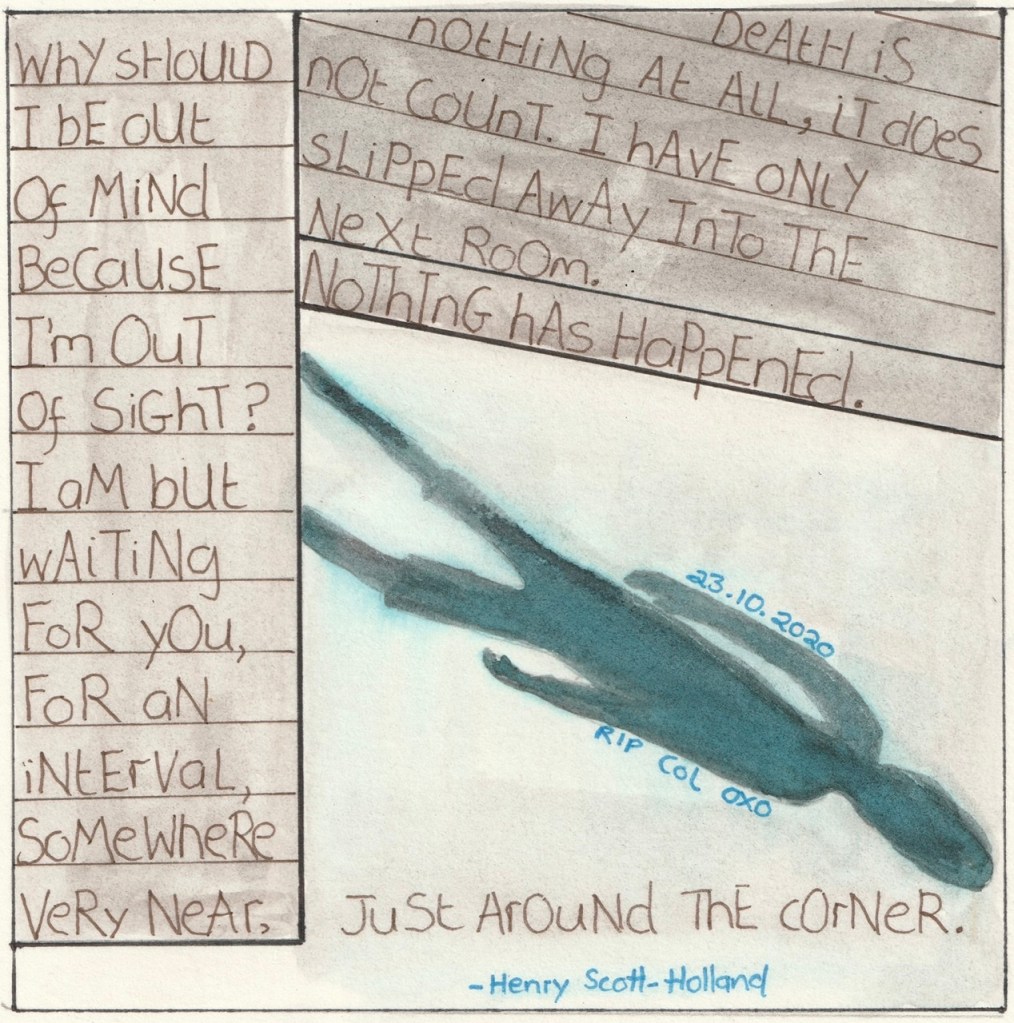 DeAtH iS
nOtHiNg At ALL, iT dOes
nOt COUnT. I hAvE oNlY
sLiPpEd AwAy InTo ThE
NeXt ROOm.
NoThInG hAs HaPpEnEd.
WhY sHOUlD
I bE oUt
Of MiNd
BeCauSE
I'm OuT
Of SiGhT?
I aM bUt
wAiTiNg
FoR yOu,
FoR aN
iNtErVaL,
SoMeWheRe
VeRy NeAr,
JuSt ArOuNd ThE cOrNeR.
23.10.2020
RIP COL OXO
-Henry Scott-Holland